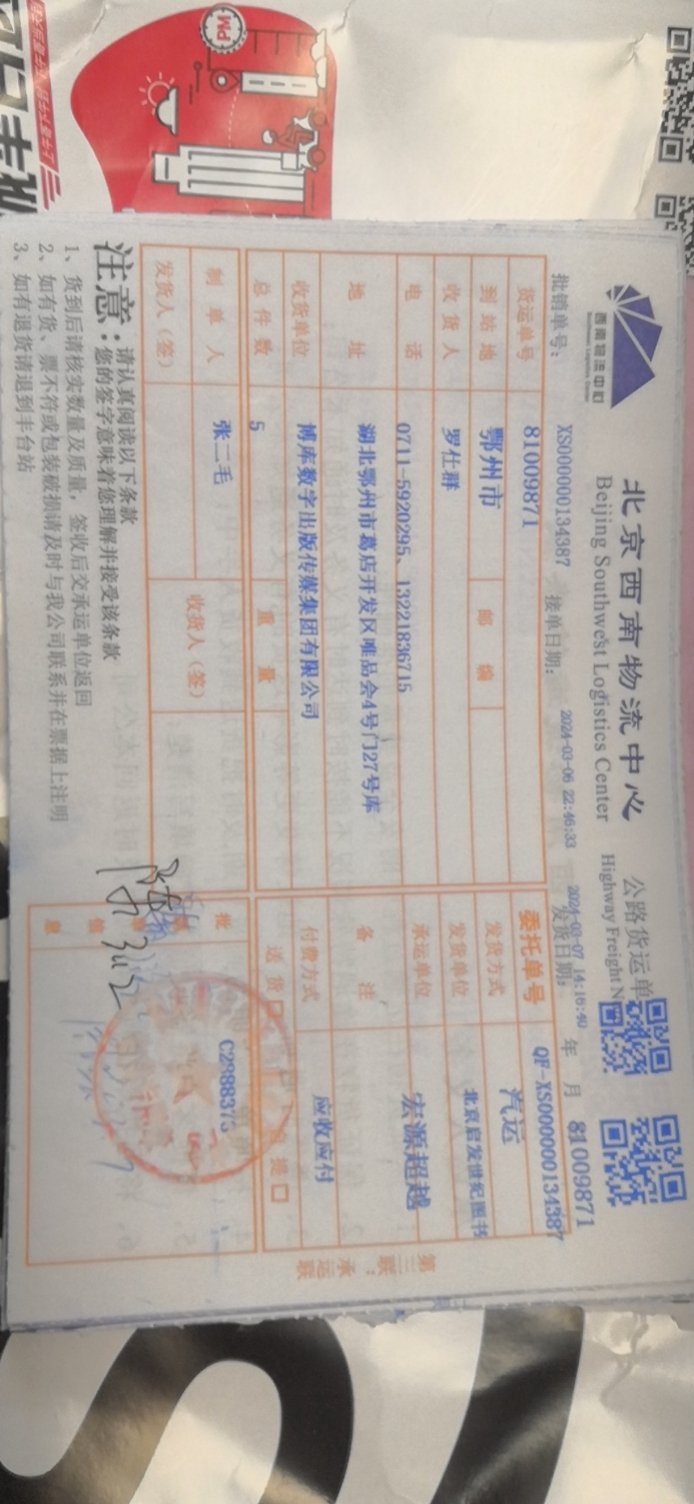 西南物流中心
Southwest Logistics Center
北京西南物流中心 公路货运单
Beijing Southwest Logistics Center Highway Freight N
批销单号： XS000000134387 接单日期： 2024-03-06 22:46:33 发货日期： 2024-03-07 14:16:40 年 月 81009871
货运单号 81009871 委托单号 QF-XS000000134387
到站地 鄂州市 邮编 发货方式 汽运
收货人 罗仕群 发货单位 北京启发世纪图书
电话 0711-5920295、13221836715 承运单位 宏源超越
地址 湖北鄂州市葛店开发区唯品会4号门27号库 备注
收货单位 博库数字出版传媒集团有限公司 付费方式 应收应付
总件数 5 重量 送货□ 自提□
制单人 张二毛 收货人（签） 批 C2888373
发货人（签） 信息
注意：请认真阅读以下条款
您的签字意味着您理解并接受该条款
1、货到后请核实数量及质量，签收后交承运单位返回
2、如有货、票不符或包装破损请及时与我公司联系并在票据上注明
3、如有退货请退到丰台站
第三联：承运联
PM